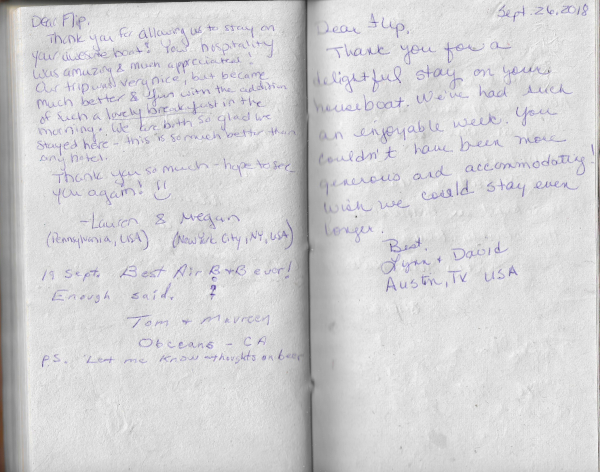 Dear Flip,
Thank you for allowing us to stay on
your awesome boat! Your hospitality
was amazing & much appreciated!
Our trip was very nice, but became
much better & fun with the addition
of such a lovely breakfast in the
morning. We are both so glad we
stayed here - this is so much better than
any hotel.
Thank you so much - hope to see
you again!
- Lauren & Megan
(Pennsylvania, USA) (New York City, NY, USA)
19 Sept. Best Air B+B ever!
Enough said.
Tom + Maureen
- CA
P.S. Let me know thoughts on beer
Sept. 26, 2018
Dear Flip,
Thank you for a
delightful stay on your
houseboat. We've had such
an enjoyable week. You
couldn't have been more
generous and accommodating!
Wish we could stay even
longer.
Best,
Lynn + David
Austin, TX USA